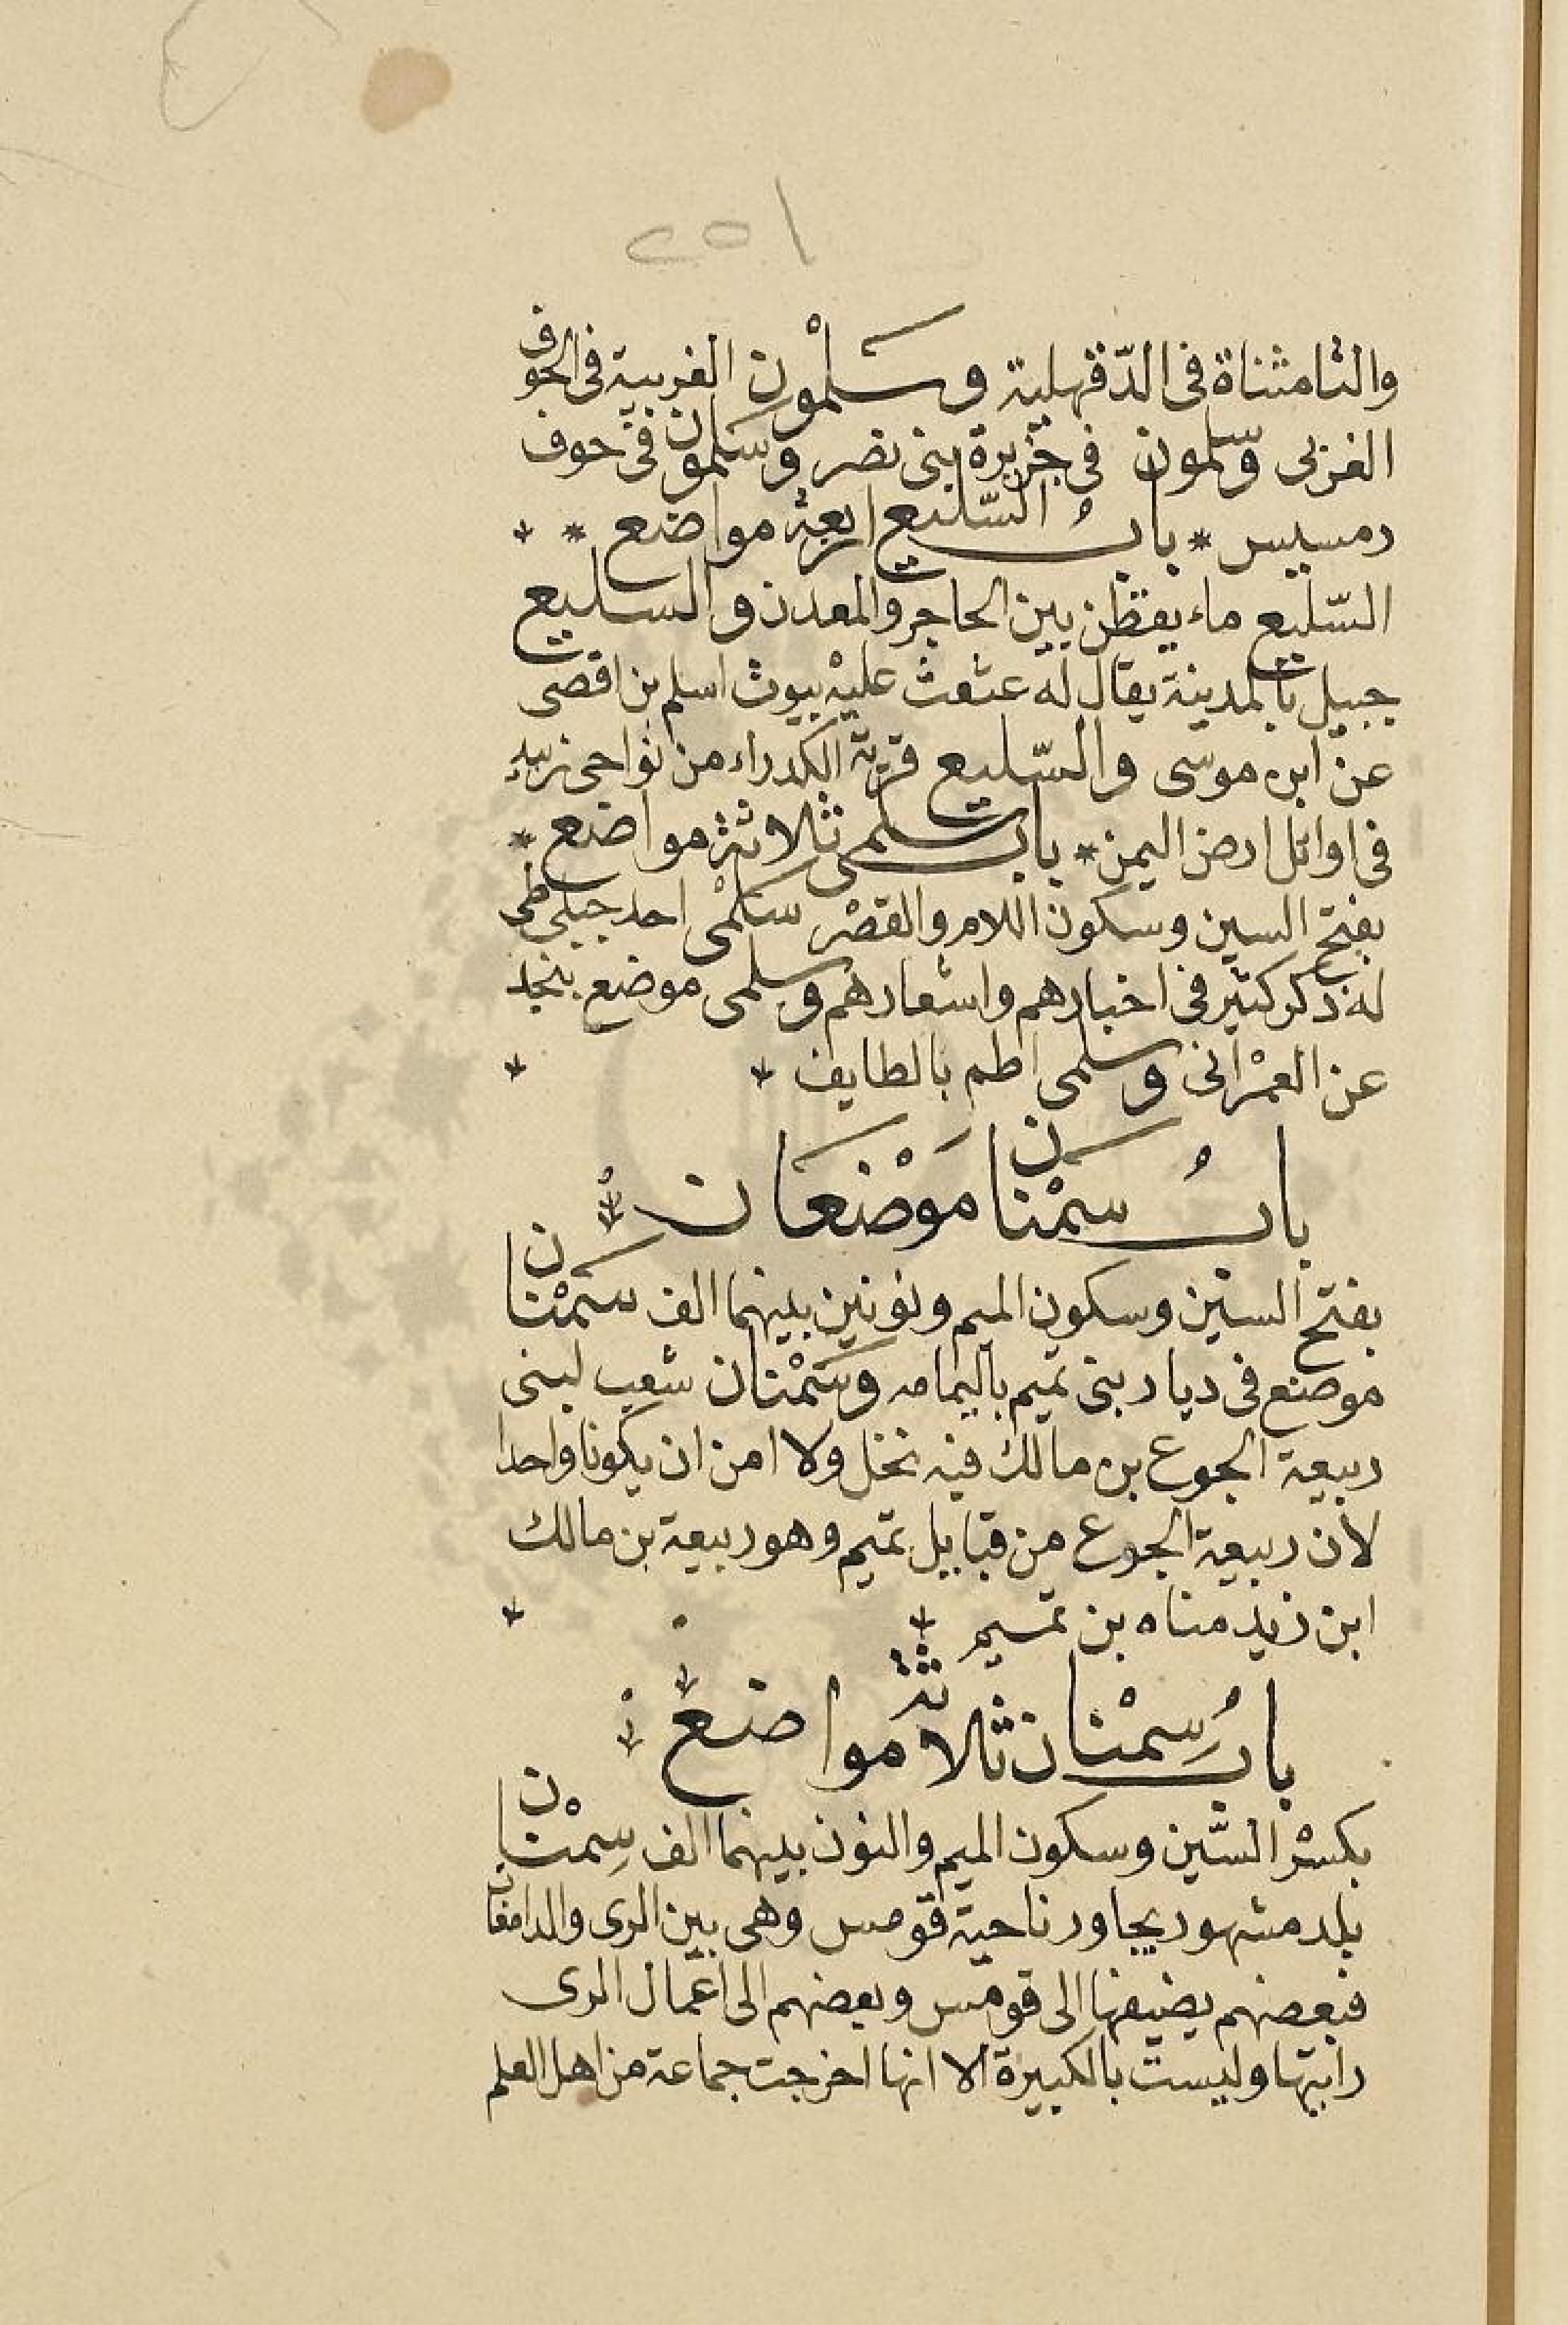 ٢٥١
والثا مثناة فى الدّقهلية وسَلْمون الغربية فى الحوف
الغربى وسلمون فى جزيرة بنى نصر وسَلمون فى حوف
رمسيس * بابُ السّليع اربعة مواضع *
السّليع ماء بقطن بين الحاجر والمعدن والسليع
جبيل بالمدينة يقال له عثعث عليه بيوت اسلم بن افصى
عن ابن موسى والسّليع قرية الكدراء من نواحى زبيد
فى اوائل ارض اليمن * باب سلمى ثلاثة مواضع *
بفتح السين وسكون اللام والقصْر سَلْمى احد جبلى طى
له ذكر كثير فى اخبارهم واشعارهم وسلمى موضع بنجد
عن العمْرانى وسلمى اطم بالطايف
بابُ سَمْنان مَوْضعَان
بفتح السين وسكون الميم ونونين بينهما الف سَمْنان
موضع فى ديار بنى تميم باليمامه وسَمْنان شعب لبنى
ربيعة الجوع بن مالك فيه نخل ولا امن ان يكونا واحدا
لأن ربيعة الجوع من قبايل تميم وهو ربيعة بن مالك
ابن زيد مناه بن تميم
بابُ سِمْنان ثلاثة مواضع
بكسْر السّين وسكون الميم والنون بينهما الف سِمْنان
بلد مشهور يجاور ناحية قومس وهى بين الرى والدامغان
فبعضهم يضيفها الى قومس وبعضهم الى اعمال الرى
رايتها وليست بالكبيرة الا انها اخرجت جماعة من اهل العلم